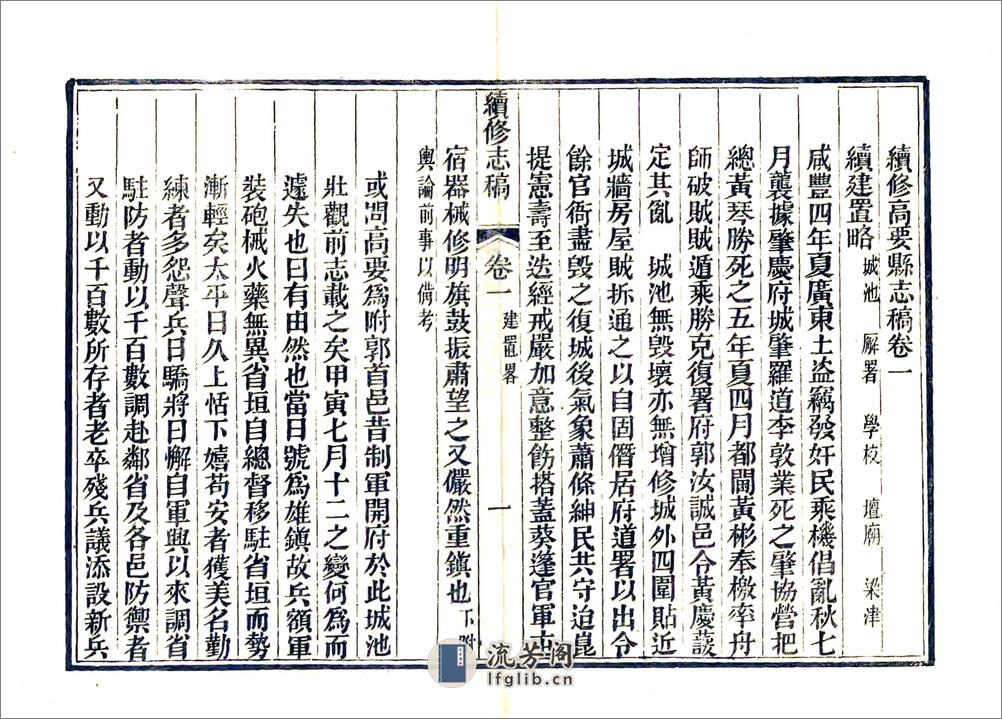 續修高要縣志稿卷一
續建置略 城池 廨署 學校 壇廟 梁津
咸豐四年夏廣東土盜竊發奸民乘機倡亂秋七
月襲據肇慶府城肇羅道李敦業死之肇協營把
總黃琴勝死之五年夏四月都閫黃彬奉檄率舟
師破賊賊遁乘勝克復署府郭汝誠邑令黃慶蕿
定其亂 城池無毀壞亦無增修城外四圍貼近
城牆房屋賊拆通之以自固僭居府道署以出令
餘官衙盡毀之復城後氣象蕭條紳民共守迨崑
提憲壽至迭經戒嚴加意整飭搭蓋葵篷官軍士
宿器械修明旗鼓振肅望之又儼然重鎮也 下附
輿論前事以備考
續修志稿 卷一 建置畧 一
或問高要爲附郭首邑昔制軍開府於此城池
壯觀前志載之矣甲寅七月十二之變何爲而
遽失也曰有由然也當日號爲雄鎮故兵額軍
裝砲械火藥無異省垣自總督移駐省垣而勢
漸輕矣太平日久上恬下嬉苟安者獲美名勤
練者多怨聲兵日驕將日懈自軍興以來調省
駐防者動以千百數調赴鄰省及各邑防禦者
又動以千百數所存者老卒殘兵議添設新兵
流芳阁
lfglib.cn